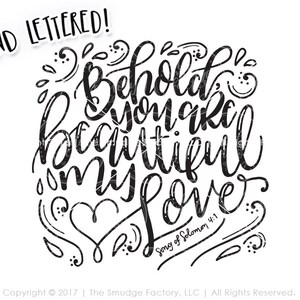 ND LETTERED!
Behold,
you are
beautiful
my
Love
Song of Solomon 4:1
Copyright © 2017 | The Smudge Factory, LLC | All Rights Reserved.